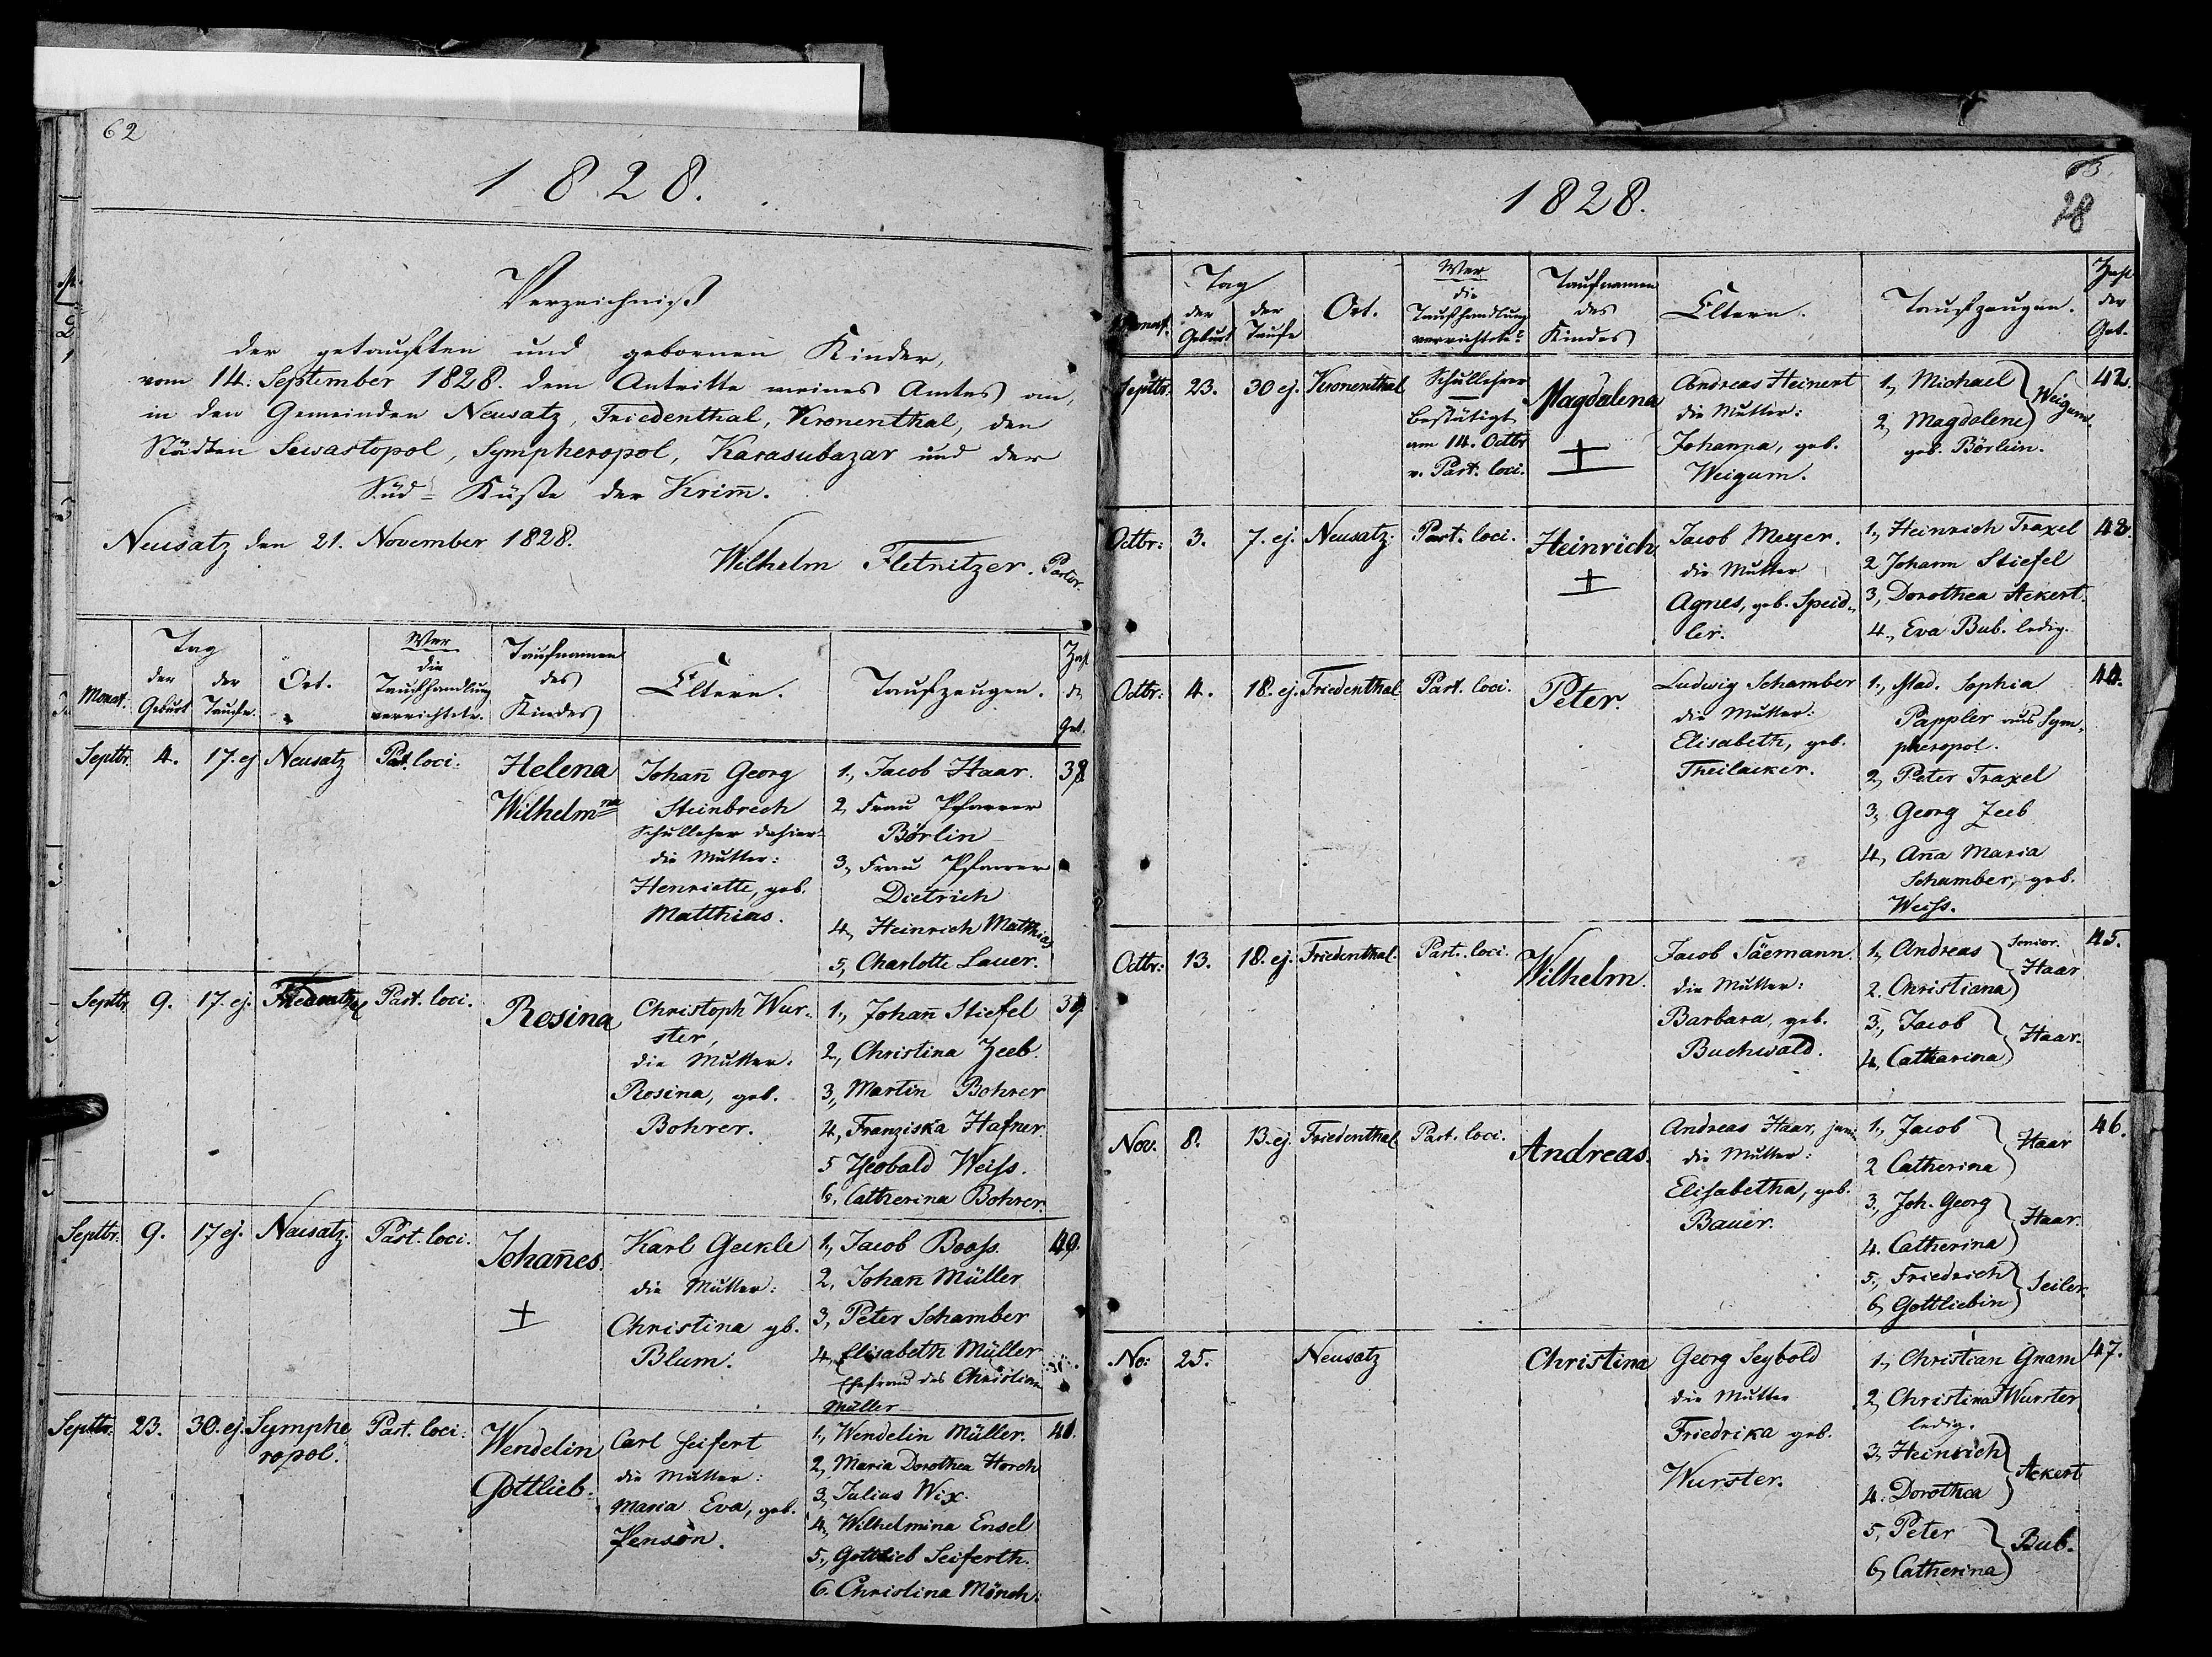 62
1828.
Verzeichniß
der getauften und gebornen Kinder,
vom 14. September 1828. dem Antritte meines Amtes an,
in den Gemeinden Neusatz, Friedenthal, Kronenthal, den
Städten Sewastopol, Sympheropol, Karasubazar und der
Süd-Küste der Krim̄.
Neusatz den 21. November 1828.
Wilhelm Fletnitzer. Pastor.
Monat.
Tag
der Geburt
der Taufe.
Ort.
Wer
die
Taufhandlung
verrichtete.
Taufnamen
des
Kindes
Eltern.
Taufzeugen.
Zahl
d.
Geb.
Septbr. 4. 17. ej Neusatz Past. loci.
Helena
Wilhelmna
Johan̄ Georg
Steinbrech
Schullehrer dahier.
die Mutter:
Henriette, geb.
Matthias.
1., Jacob Haar.
2, Frau Pfarrer
Börlin
3, Frau Pfarrer
Dietrich
4, Heinrich Matthias
5, Charlotte Lauer.
38.
Septbr. 9. 17. ej. Friedenthal Past. loci.
Rosina
Christoph Wur-
ster,
die Mutter.
Rosina, geb.
Bohrer.
1., Johan̄ Stiefel
2., Christina Zeeb.
3., Martin Bohrer
4, Franziska Hafner.
5 Theobald Weiss.
6. Catherina Bohrer.
39.
Septbr. 9. 17 ej. Neusatz. Past. loci.
Johan̄es.
+
Karl Geckle
die Mutter:
Christina gb.
Blum.
1., Jacob Booss.
2, Johan̄ Müller
3, Peter Schamber
4, Elisabeth Müller
Ehefrau des Christian
Müller
40.
Septbr. 23. 30. ej. Symphe
ropol.
Past. loci.
Wendelin
Gottlieb.
Carl Seifert
die Mutter:
Maria Eva, geb.
Penson.
1., Wendelin Müller.
2, Maria Dorothea Horch
3, Julius Wix.
4, Wilhelmina Ensel
5., Gottlieb Seiferth.
6. Christina Mönch.
41.
63.
28
1828.
Monat.
Tag
der Geburt
der Taufe
Ort.
Wer
die
Taufhandlung
verrichtete?
Taufnamen
des
Kindes
Eltern.
Taufzeugen.
Zahl
der
Geb.
Septbr. 23. 30 ej. Kronenthal
Schullehrer
bestätigt
am 14. Octbr
v. Past. loci.
Magdalena
+
Andreas Heinert
die Mutter:
Johanna, geb.
Weigum.
1., Michael
2, Magdalene
Weigum.
geb. Börlein.
42.
Octbr: 3. 7. ej. Neusatz. Past. loci.
Heinrich
+
Jacob Meyer.
die Mutter
Agnes, geb. Speid-
ler.
1., Heinrich Traxel
2 Johann Stiefel
3, Dorothea Ackert.
4., Eva Bub. ledig.
43.
Octbr: 4. 18. ej. Friedenthal Past. loci.
Peter.
Ludwig Schamber
die Mutter:
Elisabeth, geb.
Theilacker.
1., Mad. Sophia
Pappler aus Sym-
pheropol.
2, Peter Traxel
3, Georg Zeeb
4, An̄a Maria
Schamber, geb.
Weiss.
44.
Octbr: 13. 18. ej. Friedenthal. Past. loci.
Wilhelm.
Jacob Säemann.
die Mutter:
Barbara, geb.
Buchwald.
1., Andreas
2. Christiana
Senior.
Haar
3., Jacob
4, Catharina
Haar.
45.
Nov. 8. 13. ej Friedenthal Past. loci.
Andreas.
Andreas Haar, jun.
die Mutter:
Elisabetha, geb.
Bauer.
1., Jacob
2 Catherina
Haar
3, Joh. Georg
4. Catherina
Haar.
5., Friedrich
6, Gottliebin
Seiler.
46.
No: 25. Neusatz
Christina
Georg Seybold
die Mutter
Friedrika geb.
Wurster.
1., Christian Gnam
2, Christina Wurster
ledig.
3, Heinrich
4. Dorothea
Ackert
5, Peter
6, Catherina
Bub.
47.